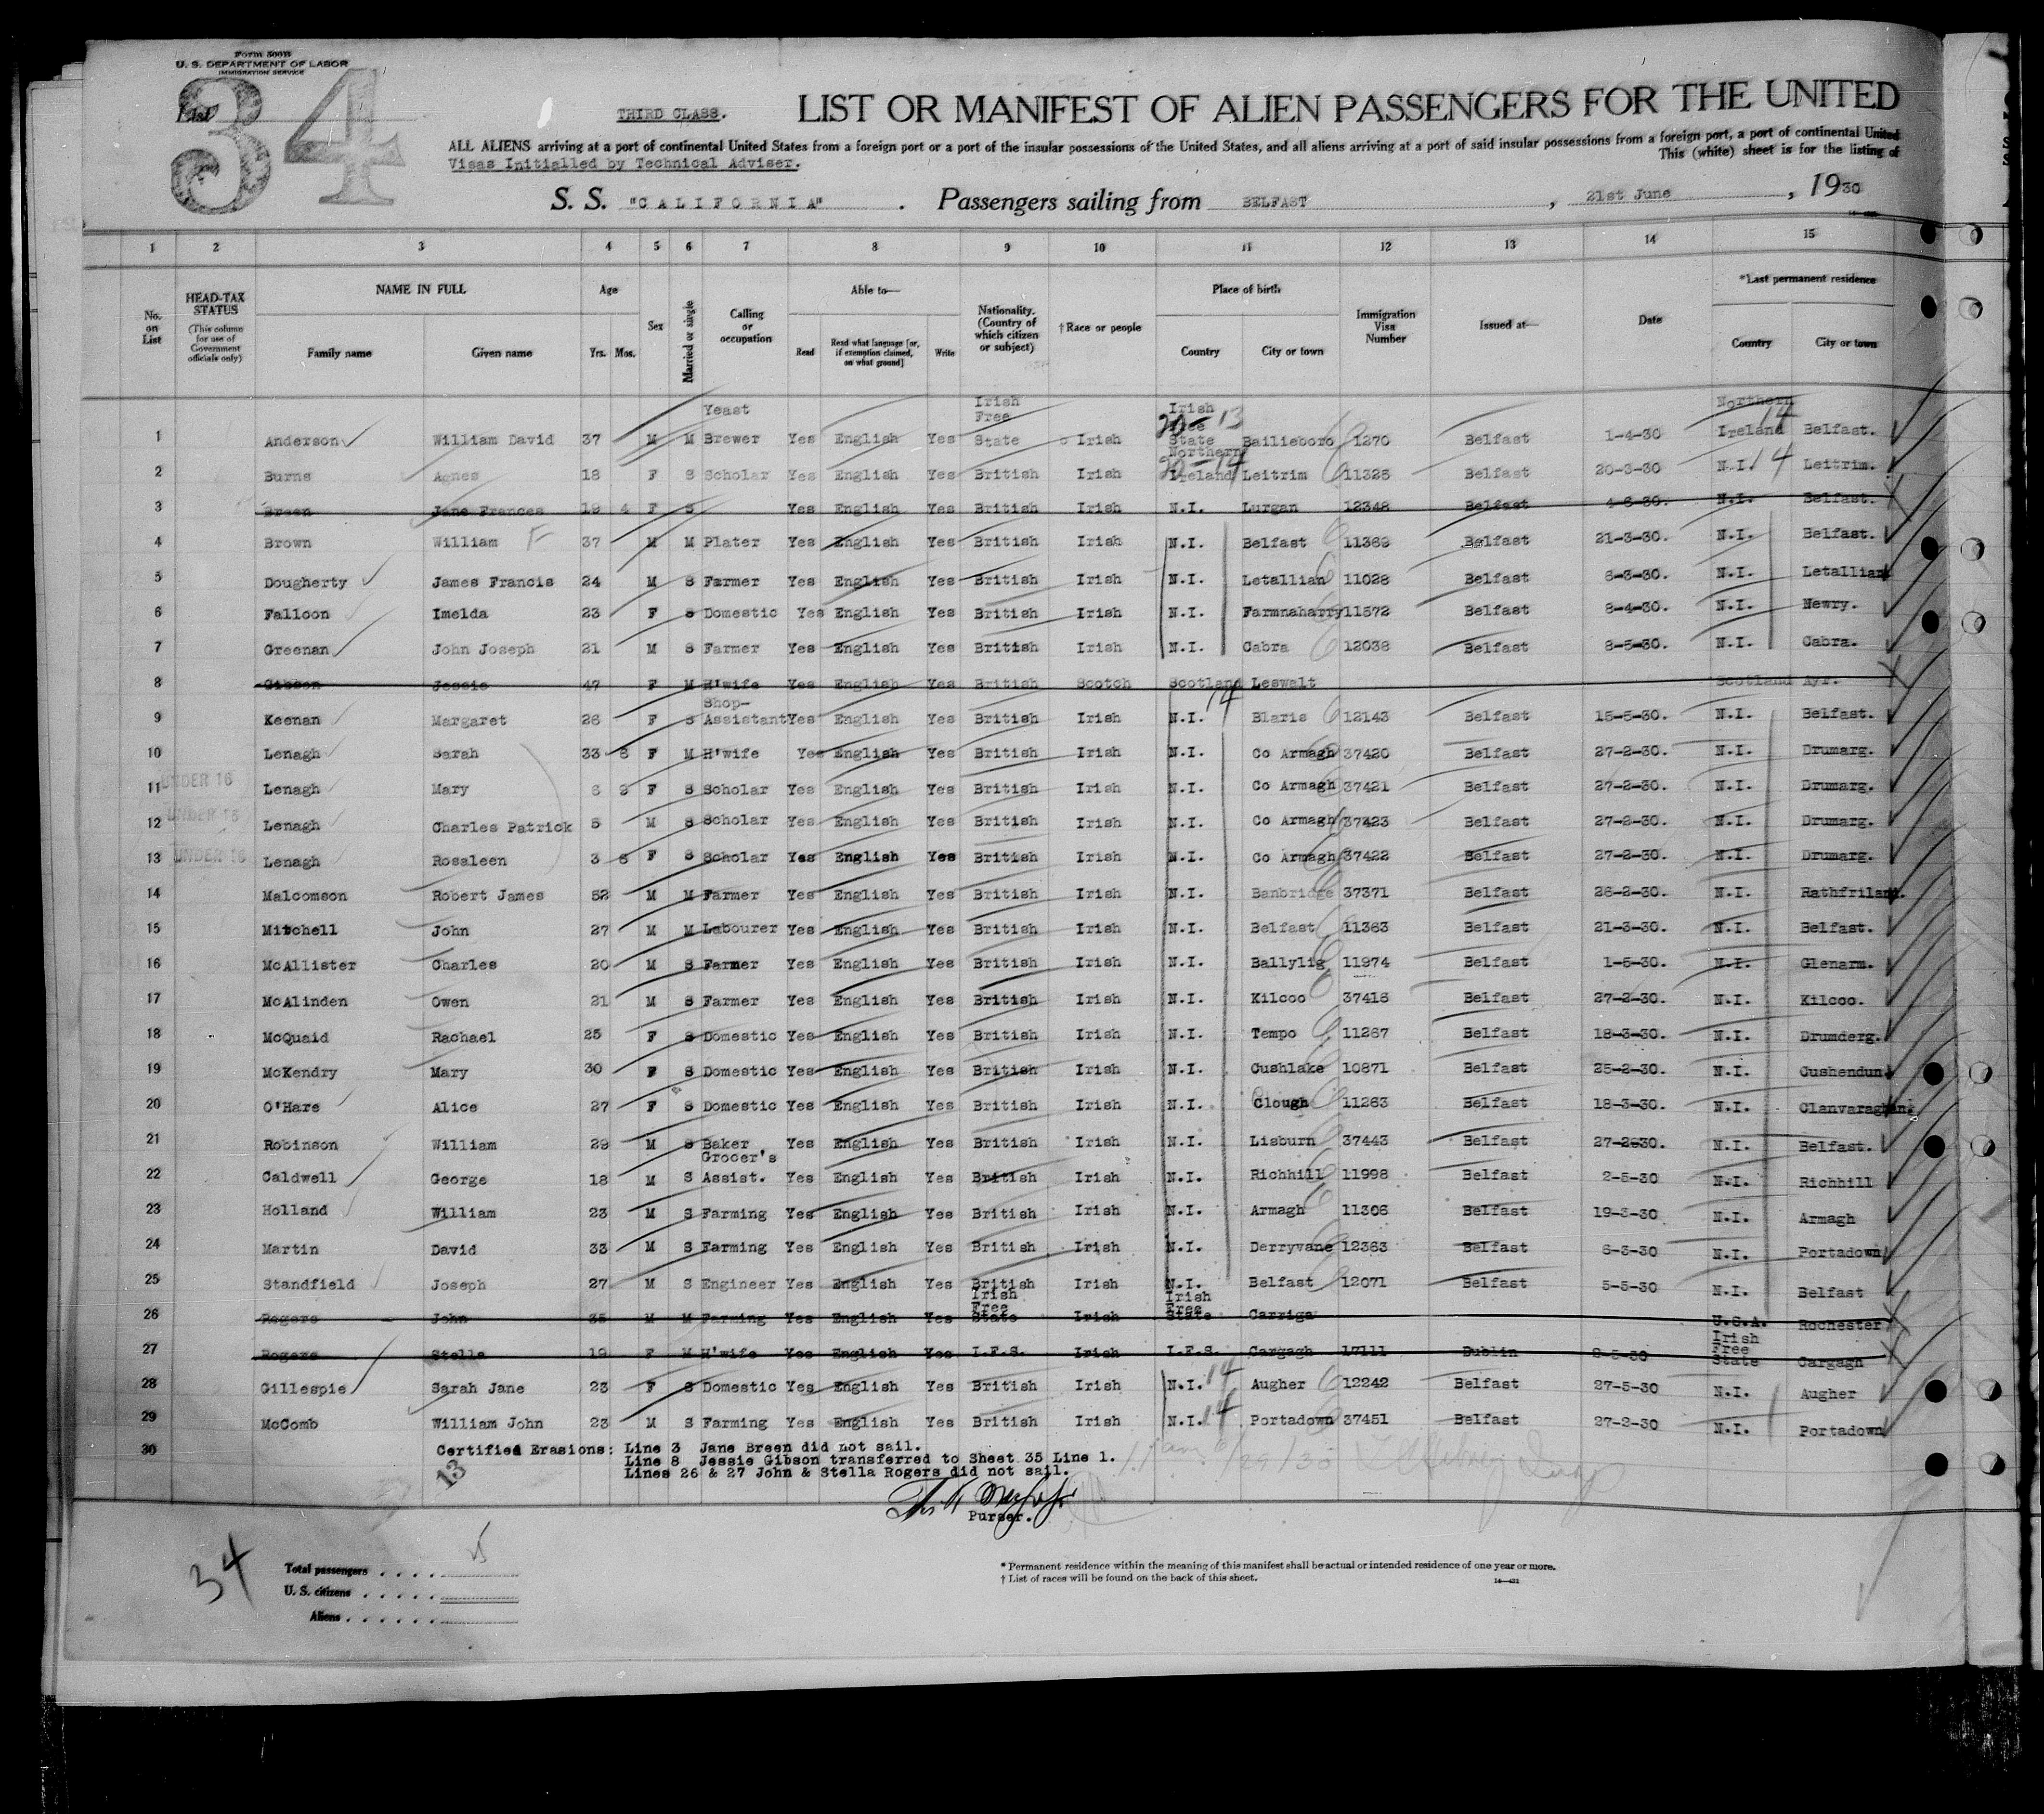 Form 500B
U. S. DEPARTMENT OF LABOR
IMMIGRATION SERVICE
List 34
THIRD CLASS.
LIST OR MANIFEST OF ALIEN PASSENGERS FOR THE UNITED
ALL ALIENS arriving at a port of continental United States from a foreign port or a port of the insular possessions of the United States, and all aliens arriving at a port of said insular possessions from a foreign port, a port of continental United
Visas Initialled by Technical Adviser. This (white) sheet is for the listing of
S. S. "CALIFORNIA" . Passengers sailing from BELFAST , 21st June , 1930
1 2 3 4 5 6 7 8 9 10 11 12 13 14 15
No. on List
HEAD-TAX STATUS (This column for use of Government officials only)
NAME IN FULL Family name Given name
Age Yrs. Mos.
Sex
Married or single
Calling or occupation
Able to— Read Read what language [or, if exemption claimed, on what ground] Write
Nationality. (Country of which citizen or subject)
†Race or people
Place of birth Country City or town
Immigration Visa Number
Issued at—
Date
*Last permanent residence Country City or town
1 Anderson William David 37 M M Yeast Brewer Yes English Yes Irish Free State Irish Irish Free State Bailieboro 1270 Belfast 1-4-30 Northern Ireland Belfast.
2 Burns Agnes 18 F S Scholar Yes English Yes British Irish Northern Ireland Leitrim 11328 Belfast 20-3-30 N.I. Leitrim.
3 Breen Jane Frances 19 4 F S Yes English Yes British Irish N.I. Lurgan 12348 Belfast 4-6-30. N.I. Belfast.
4 Brown William F 37 M M Plater Yes English Yes British Irish N.I. Belfast 11369 Belfast 21-3-30. N.I. Belfast.
5 Dougherty James Francis 24 M S Farmer Yes English Yes British Irish N.I. Letallian 11028 Belfast 6-3-30. N.I. Letallian
6 Falloon Imelda 23 F S Domestic Yes English Yes British Irish N.I. Farmnaharry 11572 Belfast 8-4-30. N.I. Newry.
7 Greenan John Joseph 21 M S Farmer Yes English Yes British Irish N.I. Cabra 12038 Belfast 8-5-30. N.I. Cabra.
8 Gibson Jessie 47 F M H'wife Yes English Yes British Scotch Scotland Leswalt Scotland Ayr.
9 Keenan Margaret 26 F S Shop-Assistant Yes English Yes British Irish N.I. Blaris 12143 Belfast 15-5-30. N.I. Belfast.
10 Lenagh Sarah 33 8 F M H'wife Yes English Yes British Irish N.I. Co Armagh 37420 Belfast 27-2-30. N.I. Drumarg.
11 UNDER 16 Lenagh Mary 6 9 F S Scholar Yes English Yes British Irish N.I. Co Armagh 37421 Belfast 27-2-30. N.I. Drumarg.
12 UNDER 16 Lenagh Charles Patrick 5 M S Scholar Yes English Yes British Irish N.I. Co Armagh 37423 Belfast 27-2-30. N.I. Drumarg.
13 UNDER 16 Lenagh Rosaleen 3 8 F S Scholar Yes English Yes British Irish N.I. Co Armagh 37422 Belfast 27-2-30. N.I. Drumarg.
14 Malcomson Robert James 52 M M Farmer Yes English Yes British Irish N.I. Banbridge 37371 Belfast 26-2-30. N.I. Rathfriland.
15 Mitchell John 27 M M Labourer Yes English Yes British Irish N.I. Belfast 11363 Belfast 21-3-30. N.I. Belfast.
16 McAllister Charles 20 M S Farmer Yes English Yes British Irish N.I. Ballylig 11974 Belfast 1-5-30. N.I. Glenarm.
17 McAlinden Owen 21 M S Farmer Yes English Yes British Irish N.I. Kilcoo 37416 Belfast 27-2-30. N.I. Kilcoo.
18 McQuaid Rachael 25 F S Domestic Yes English Yes British Irish N.I. Tempo 11267 Belfast 18-3-30. N.I. Drumderg.
19 McKendry Mary 30 F S Domestic Yes English Yes British Irish N.I. Cushlake 10871 Belfast 25-2-30. N.I. Cushendun
20 O'Hare Alice 27 F S Domestic Yes English Yes British Irish N.I. Clough 11263 Belfast 18-3-30. N.I. Clanvaraghan
21 Robinson William 29 M S Baker Yes English Yes British Irish N.I. Lisburn 37443 Belfast 27-2-30. N.I. Belfast.
22 Caldwell George 18 M S Grocer's Assist. Yes English Yes British Irish N.I. Richhill 11998 Belfast 2-5-30 N.I. Richhill
23 Holland William 23 M S Farming Yes English Yes British Irish N.I. Armagh 11306 Belfast 19-3-30 N.I. Armagh
24 Martin David 33 M S Farming Yes English Yes British Irish N.I. Derryvane 12363 Belfast 6-3-30 N.I. Portadown
25 Standfield Joseph 27 M S Engineer Yes English Yes British Irish N.I. Belfast 12071 Belfast 5-5-30 N.I. Belfast
26 Rogers John 35 M M Farming Yes English Yes Irish Free State Irish Irish Free State Carriga U.S.A. Rochester
27 Rogers Stella 19 F M H'wife Yes English Yes I.F.S. Irish I.F.S. Cargagh 17111 Dublin Irish Free State Cargagh
28 Gillespie Sarah Jane 23 F S Domestic Yes English Yes British Irish N.I. 14 Augher 12242 Belfast 27-5-30 N.I. Augher
29 McComb William John 23 M S Farming Yes English Yes British Irish N.I. 14 Portadown 37451 Belfast 27-2-30 N.I. Portadown
30 Certified Erasions: Line 3 Jane Breen did not sail.
Line 8 Jessie Gibson transferred to Sheet 35 Line 1.
13 Lines 26 & 27 John & Stella Rogers did not sail.
Purser.
34
Total passengers . . . .
U. S. citizens . . . . .
Aliens . . . . . .
* Permanent residence within the meaning of this manifest shall be actual or intended residence of one year or more.
† List of races will be found on the back of this sheet.